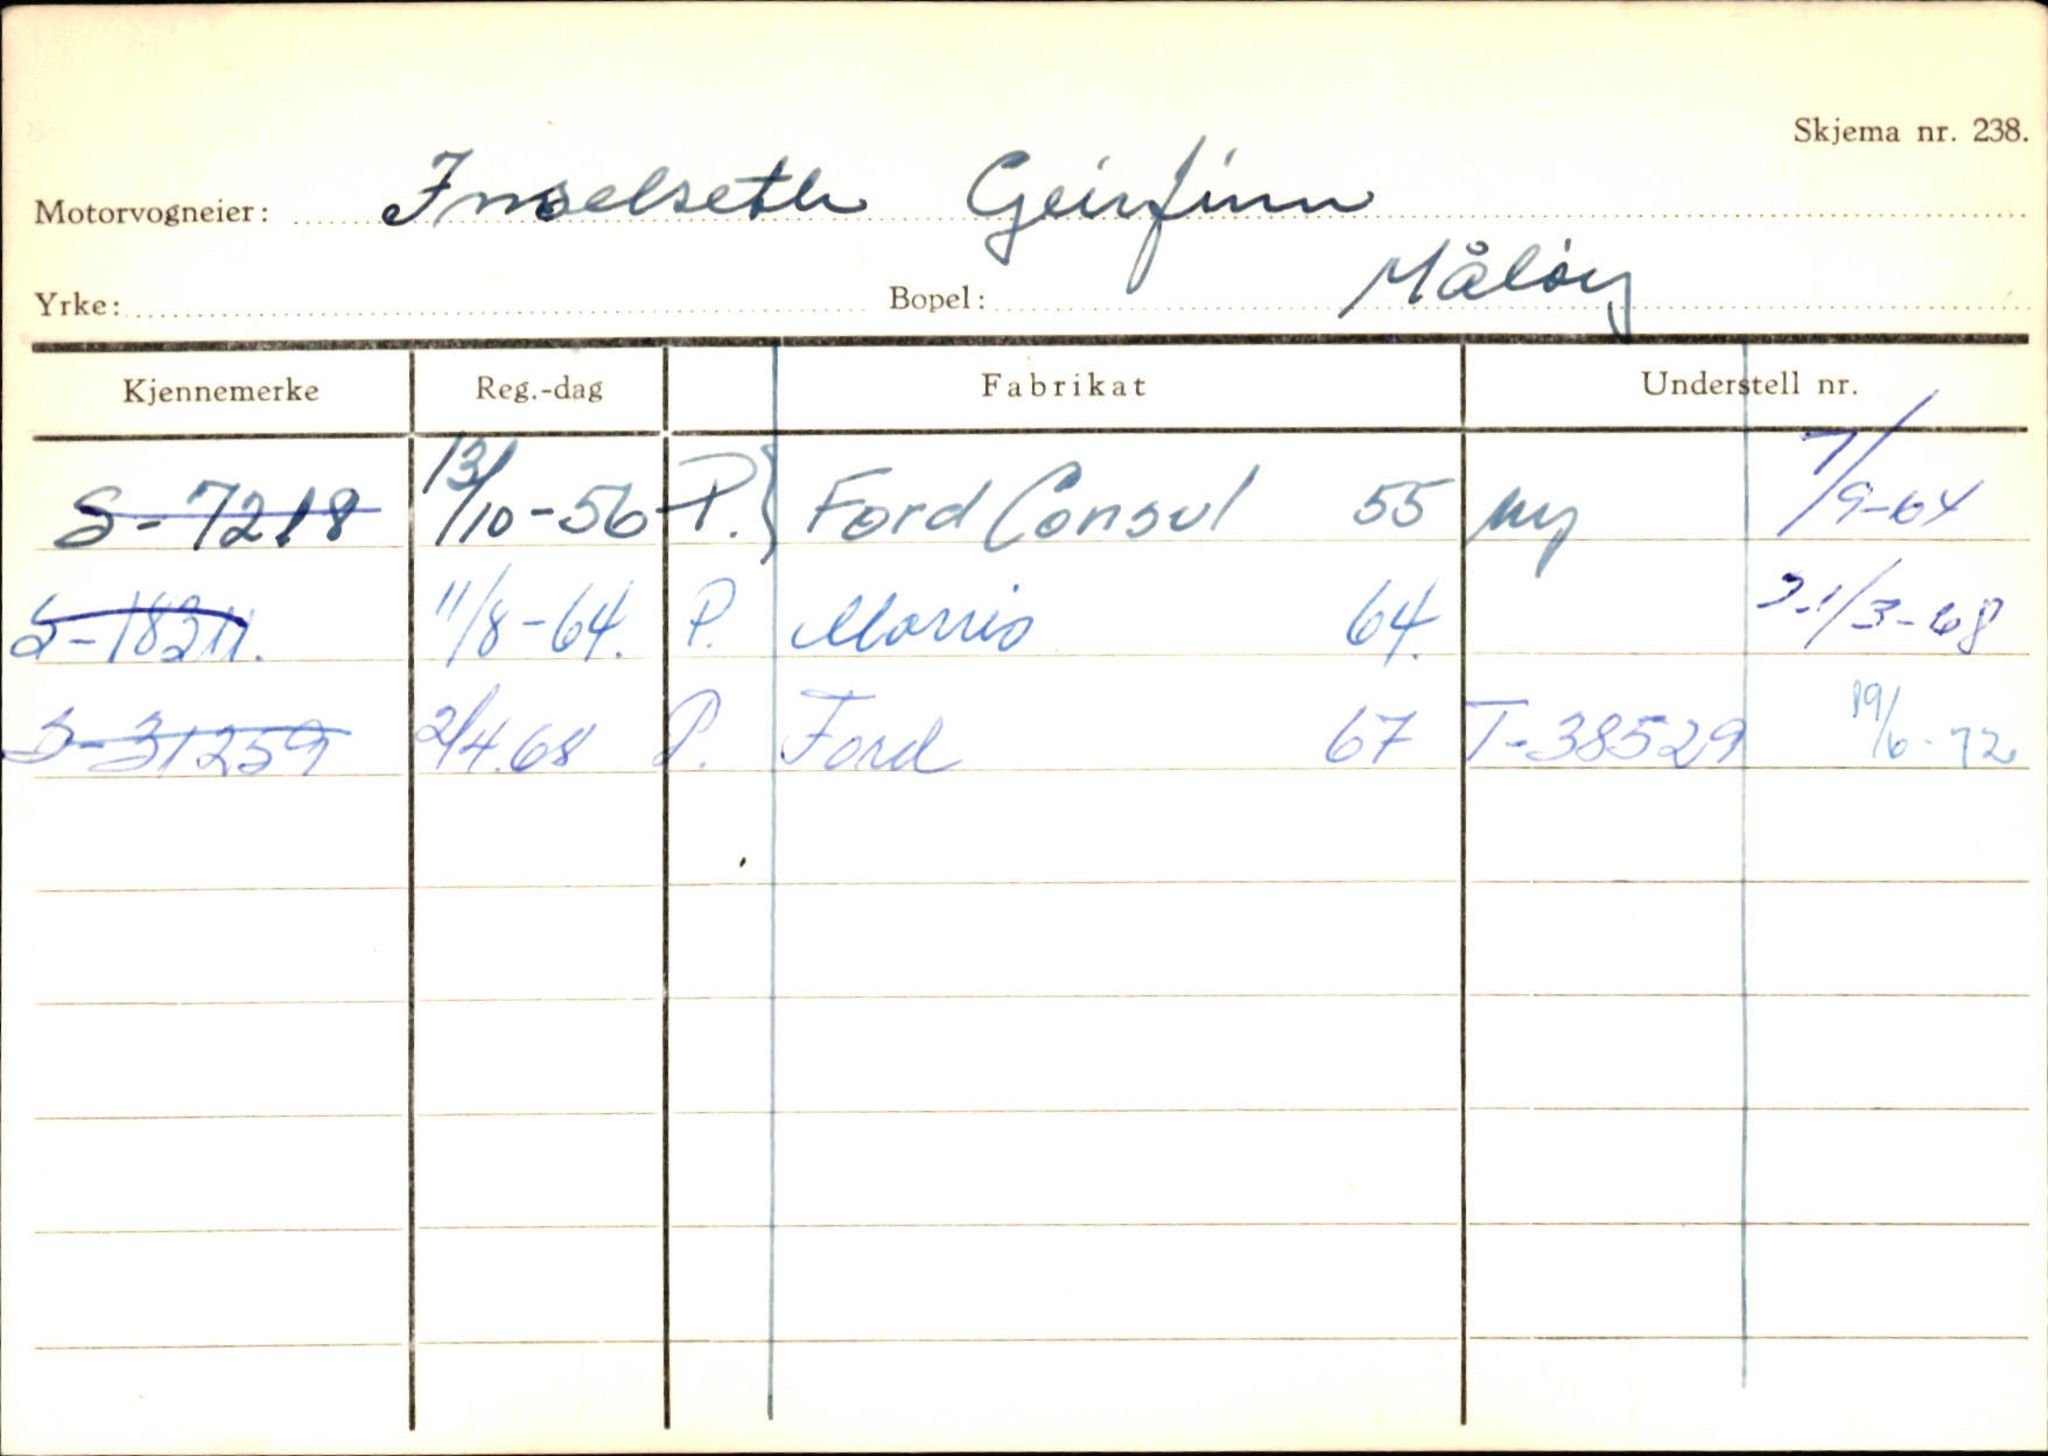 Skjema nr. 238.
Motorvogneier: Inselseth Geirfinn
Yrke: Bopel: Måløy
Kjennemerke Reg.-dag Fabrikat Understell nr.
S-7218 13/10-56 P. } Ford Consul 55 ny 7/9-64
S-18211. 11/8-64. P. Morris 64. 21/3-68
S-31259 2/4.68 P. Ford 67 T-38529 19/6-72